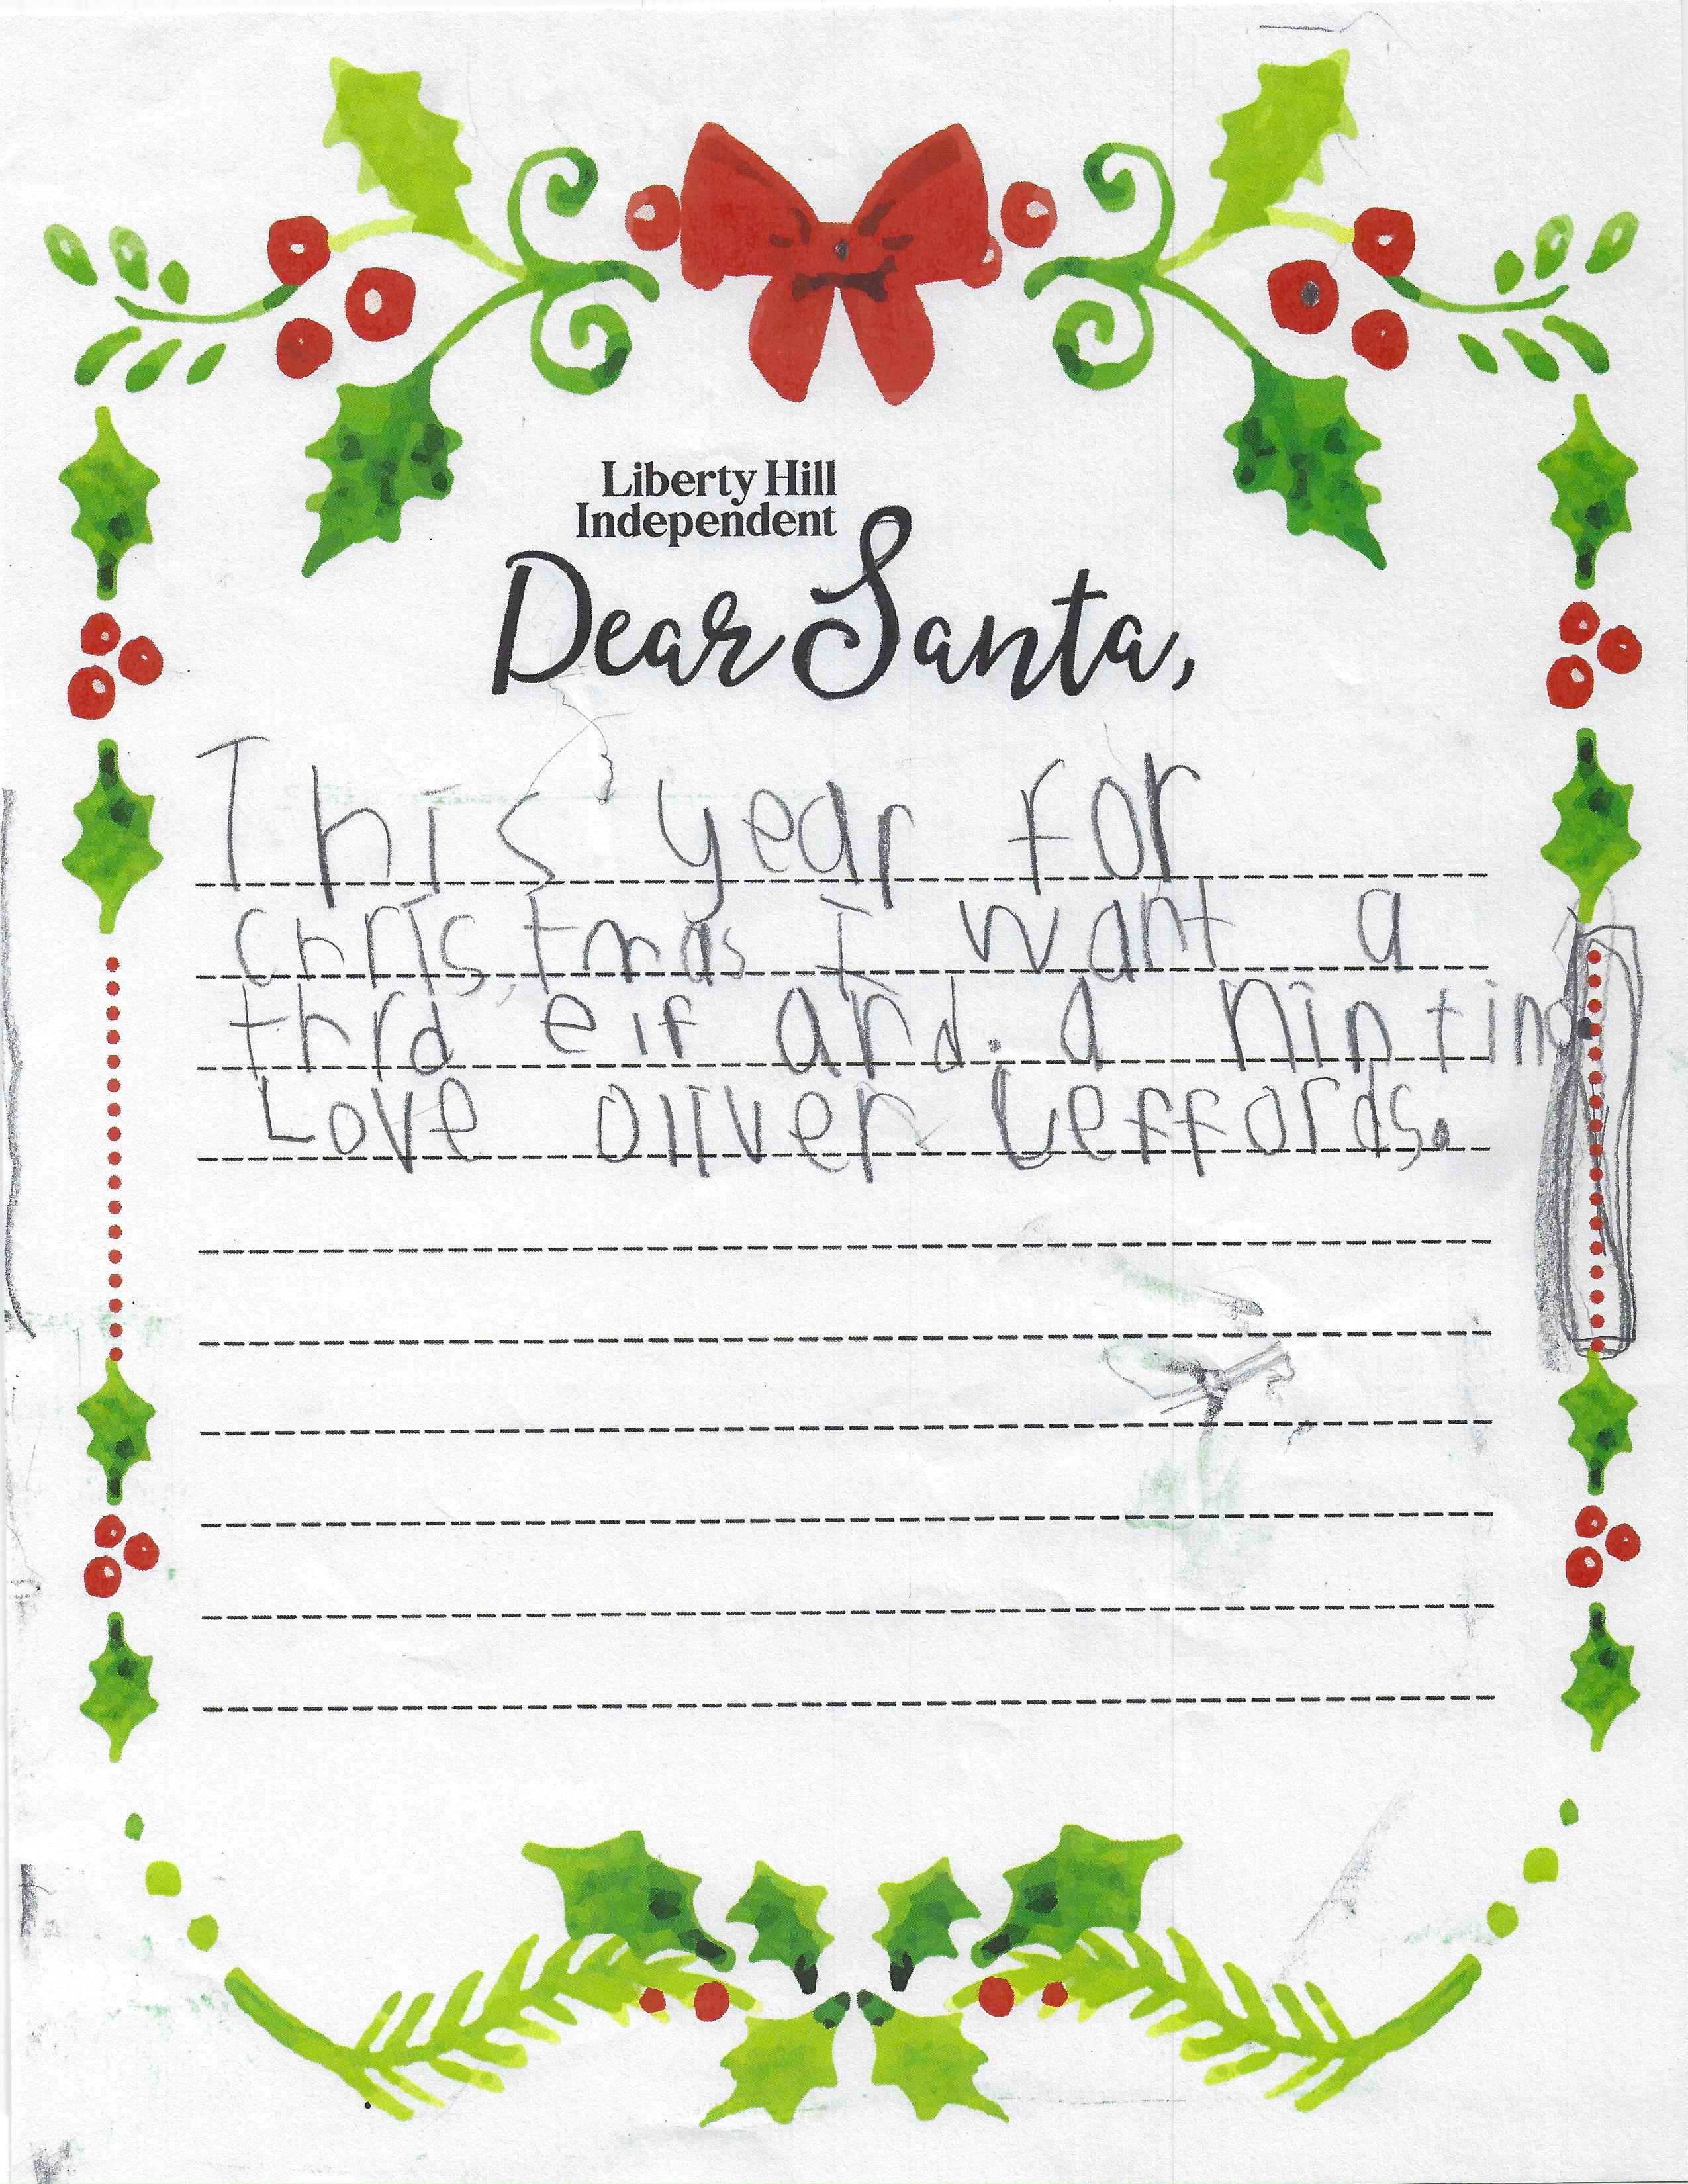 Liberty Hill
Independent
Dear Santa,
This year for
christmas I want a
thrd elf and. a nintind
Love Oliver Leffords.